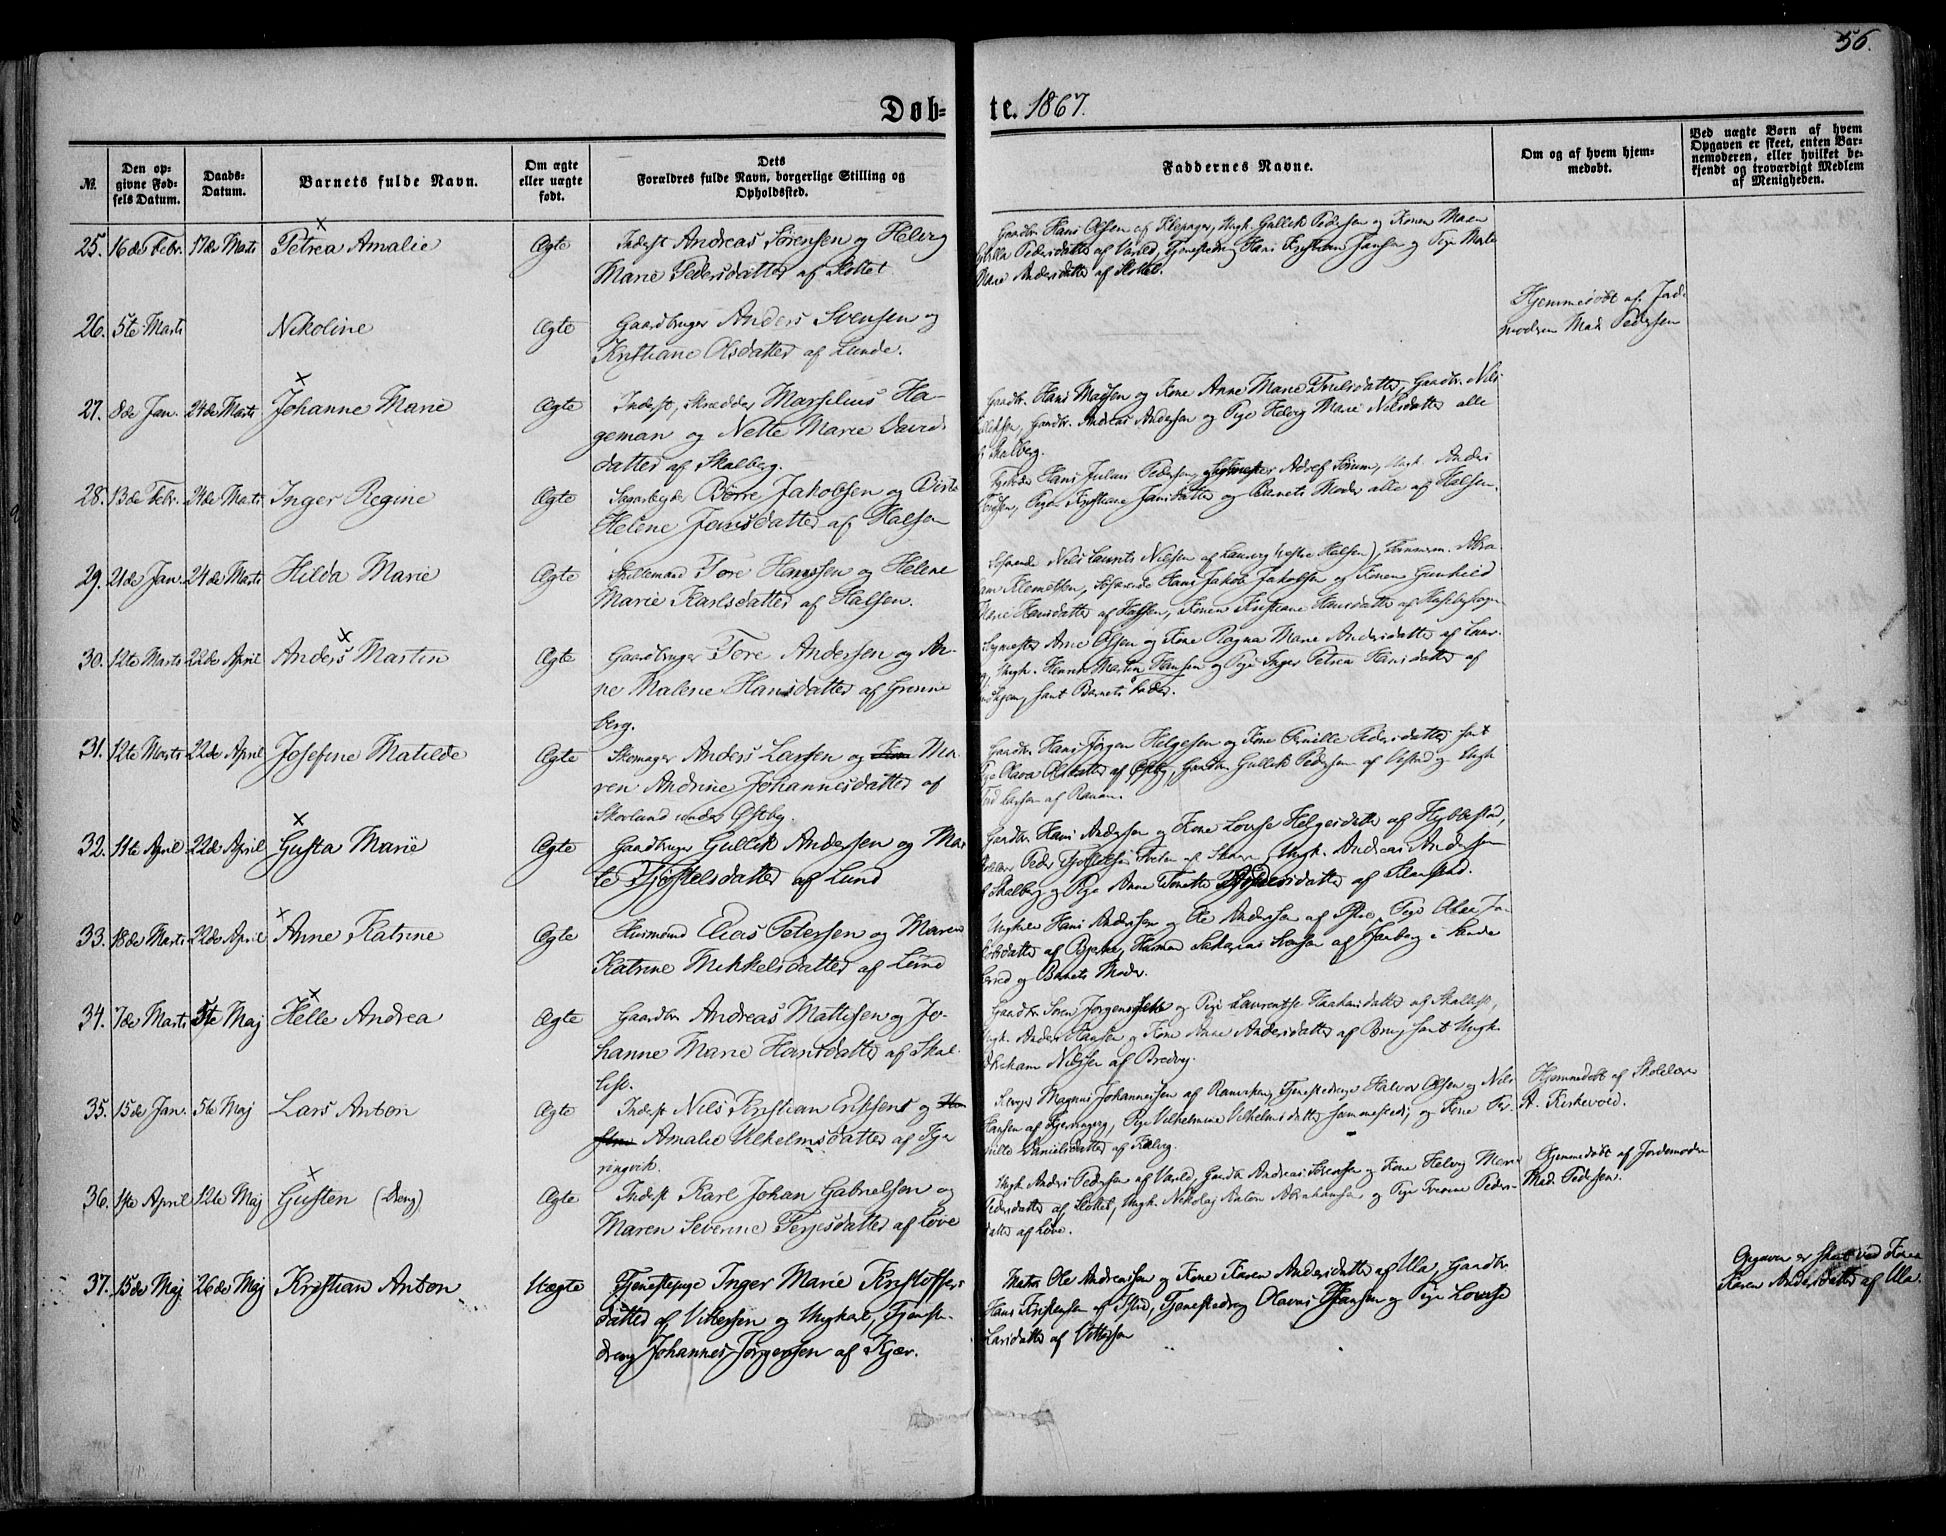 56.
Døb-te. 1867.
№
Den op-
givne Fød-
sels Datum.
Daabs-
Datum.
Barnets fulde Navn.
Om ægte
eller uægte
født.
Dets
Forældres fulde Navn, borgerlige Stilling og
Opholdssted.
Faddernes Navne.
Om og af hvem hjem-
medøbt.
Ved uægte Børn af hvem
Opgaven er skeet, enten Bar-
nemoderen, eller hvilket be-
kjendt og troværdigt Medlem
af Menigheden.
25. 16de Febr. 17de Marts Petrea Amalie Ægte Inderst Andreas Sørensen og Helvig
Marie Pedersdatter af Slottet
Gaardbr. Hans Olsen af Klepager, Ungk. Gullik Pedersen og Konen Maren
Pedersdatter af Varild, Tjenestedreng Hans Kristian Hansen og Pige Marte
Marie Andersdatter af Slottet.
26. 5te Marts Nikoline Ægte Gaardbruger Anders Svensen og
Kristiane Olsdatter af Lunde.
Hjemmedøbt af Jorde-
moderen Mad. Pedersen
27. 8de Jan. 24de Marts Johanne Marie Ægte Inderst, Skrædder Marselius Ha-
geman og Nette Marie David-
datter af Skalberg.
Gaardbr. Hans Madsen og Kone Anne Marie Trulsdatter, Gaardbr. Nils
Gulliksen, Gaardbr. Andreas Andersen og Pige Helvig Marie Nilsdatter alle
af Skalberg.
28. 13de Febr. 24de Marts Inger Regine Ægte Børre Jakobsen og Birte
Helene Jansdatter af Halsen
Hans Julius Pedersen, Adolf Sørum, Ungk. Anders
Pige Kristiane Jansdatter og Barnets Moder alle af Halsen.
29. 21de Jan. 24de Marts Hilda Marie Ægte Spillemand Tore Hanssen og Helene
Marie Karlsdatter af Halsen.
Nils Laurits Nilsen af Laurvig (vestre Halsen), Abra-
ham Klemetsen, Søfarende Hans Jakob Jakobsen og Konen Gunhild
Marie Hansdatter af Halsen, Konen Kristiane Hansdatter af
30. 12te Marts 22de April Anders Martin Ægte Gaardbruger Tore Andersen og An-
ne Malene Hansdatter af Grønne
berg.
Arne Olsen og Kone Ragna Marie Andersdatter af Laur-
vig, Ungk. Henrik Martin Hansen og Pige Inger Petrea Hansdatter af
samt Barnets Fader.
31. 12te Marts 22de April Josefine Matilde Ægte Skomager Anders Larsen og Ma-
ren Andrine Johannesdatter af
Skovland under Østby.
Gaardbr. Hans Jørgen Helgesen og Kone Pernille Pedersdatter samt
Pige Olava Olsdatter af Østby, Gaardbr. Gullik Pedersen af Vestad og Ungk.
Larsen af
32. 11te April 22de April Gusta Marie Ægte Gaardbruger Gullik Andersen og Mar-
te Tjøstelsdatter af Lund
Gaardbr. Hans Andersen og Kone Lovise Helgesdatter af Hybbestad,
Peder Tjøstelsen af Ungk. Andreas Andersen
af Skalberg og Pige Anne Tonette af Klanstad.
33. 18de Marts 22de April Anne Katrine Ægte Husmand Elias Petersen og Maren
Katrine Mikkelsdatter af Lund
Ungkarl Hans Andersen og Ole Andersen af Istre, Pige Oline Ja-
kobsdatter af Bjerne, Husmand Sakarias af i Sande
herred og Barnets Moder.
34. 7de Marts 5te Maj Helle Andrea Ægte Gaardbr. Andreas Mattisen og Jo-
hanne Marie Hansdatter af Skal-
list.
Gaardbr. Søren Jørgensen og Pige Laurentse Haakansdatter af Skallist,
Ungk. Anders Hansen og Kone Anne Andersdatter af Brug, samt Ungk.
Abraham Nilsen af Bredvej.
35. 15de Jan. 5te Maj Lars Anton Ægte Inderst Nils Kristian Eriksen og
Amalie Vilhelmsdatter af Fjæ
ringvik.
Magnus Johannessen af Ranviken, Tjenestedrenge Halvor Olsen og Nils
Hansen af Kjerringvig, Pige Vilhelmine Vilhelmsdatter sammesteds, og Kone Per-
nille Danielsdatter af
Hjemmedøbt af Skolelærer
A. Kirkevold.
36. 1ste April 12te Maj Gusten (Dreng) Ægte Inderst Karl Johan Gabrielsen og
Maren Severine Terjesdatter af Løve
Ungk. Anders Pedersen af Varild, Gaardbr. Andreas Sørensen og Kone Helvig Marie
Pedersdatter af Slottet, Ungk. Nikolaj Anton Abrahamsen og Pige Peders-
datter af Løve.
Hjemmedøbt af Jordemoder
Mad. Pedersen.
37. 15de Maj 26de Maj Kristian Anton Uægte Tjenestepige Inger Marie Kristoffers-
datter af Vittersen og Ungkarl, Tjeneste-
dreng Johannes Jørgensen af Kjær.
Matros Ole Andreassen og Kone Karen Andersdatter af Ula, Gaardbr.
Hans Kristensen af Istre, Tjenestedreng Olavus Hansen og Pige Lovise
Larsdatter af Vittersen
Opgaven er skeet ved Konen
Karen Andersdatter af Ula.